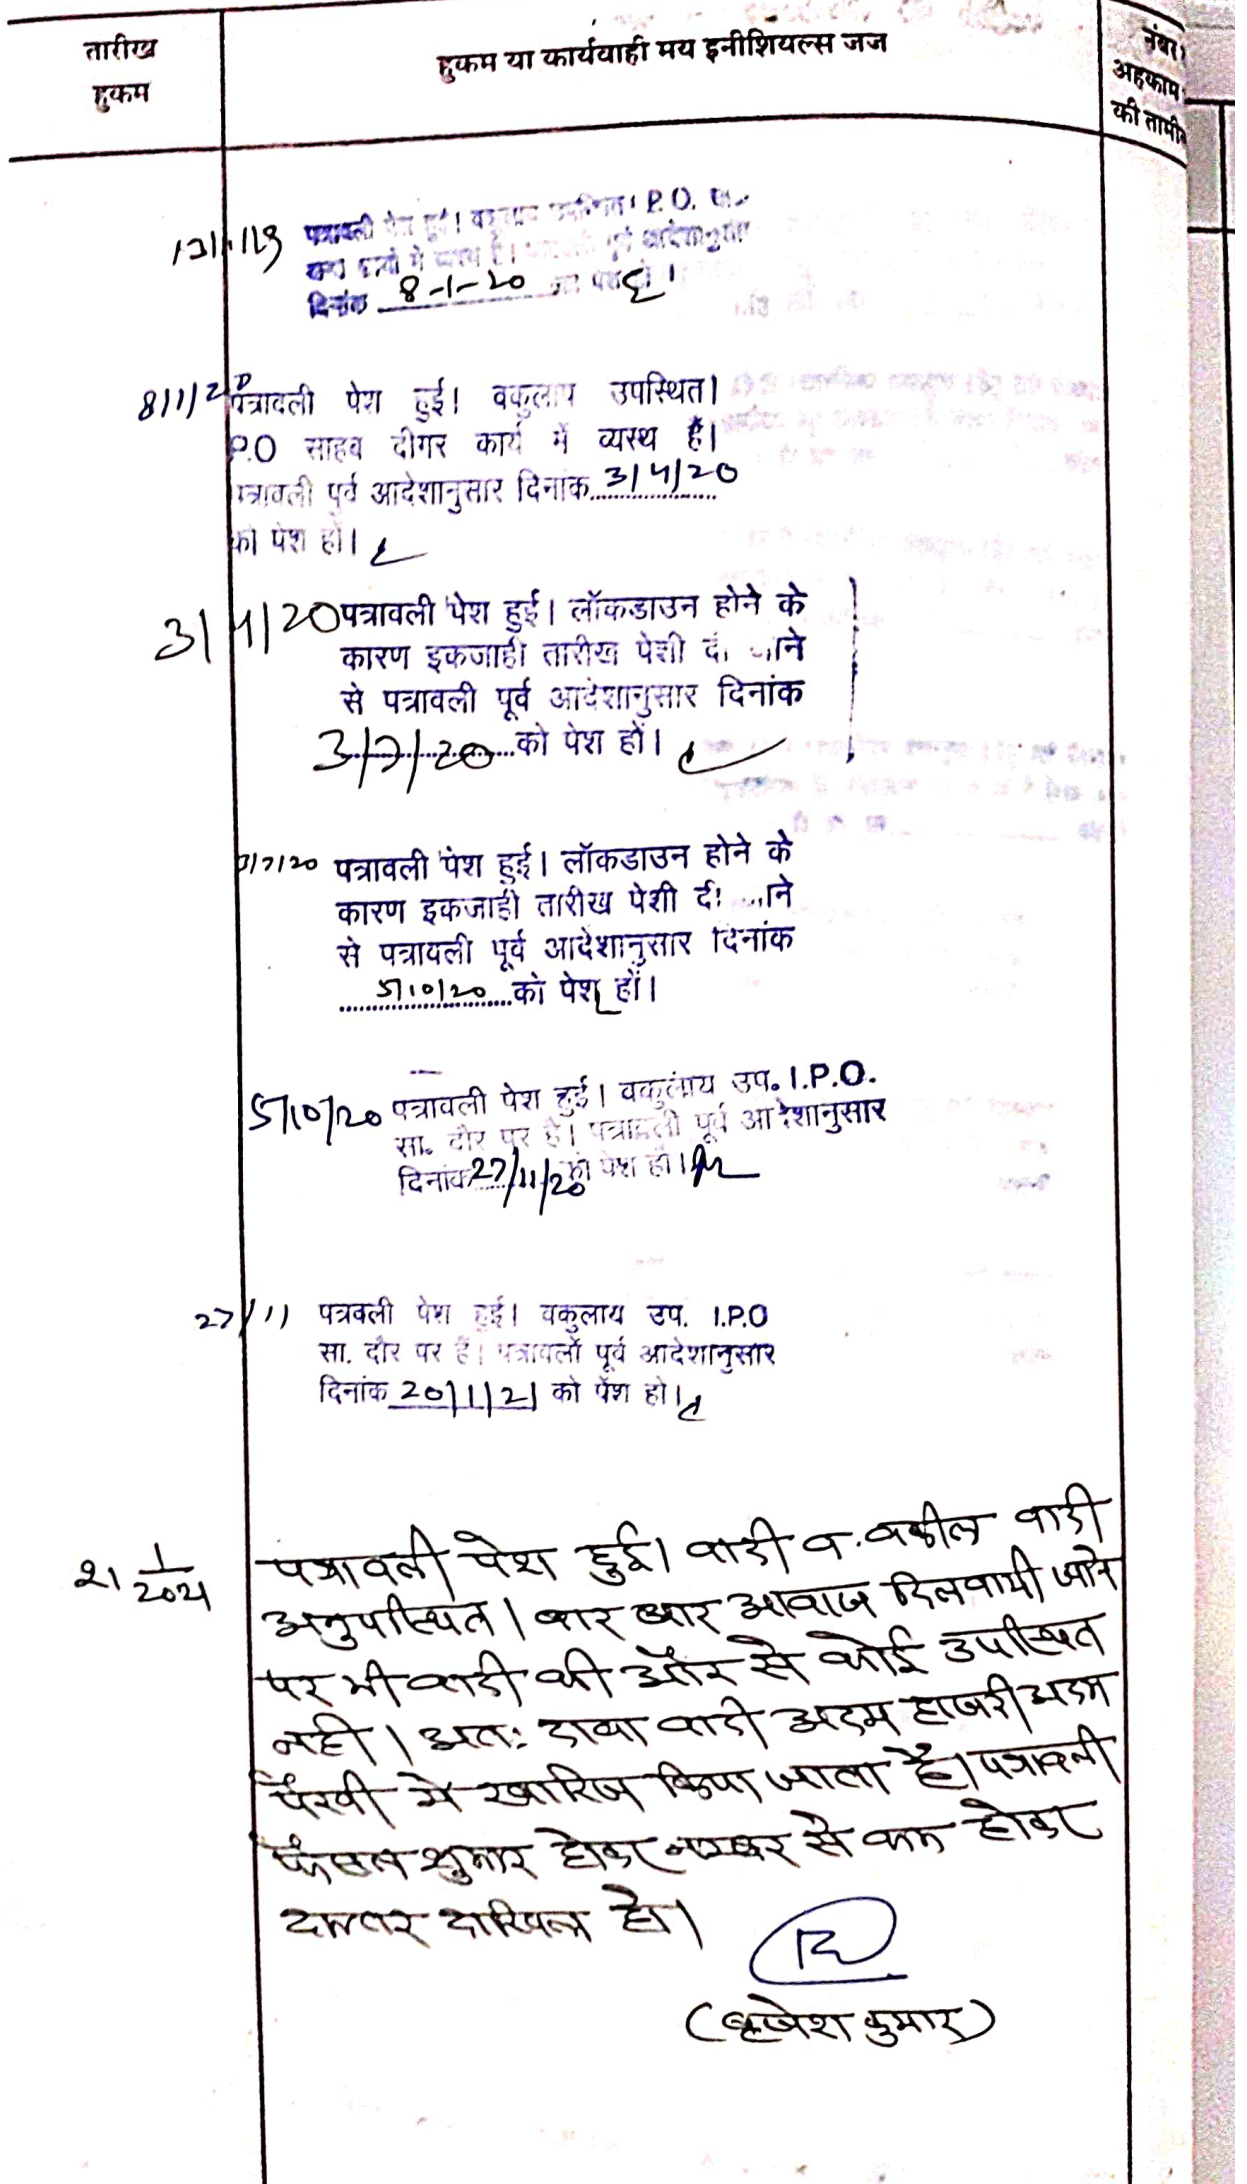 तारीख
हुकम
हुकम या कार्यवाही मय इनीशियल्स जज
नंबर
अहकाम
की तामी
पत्रावली पेश हुई। वकुलाय उपस्थित। P.O.
दिनांक 8-1-20
8/1/20 पत्रावली पेश हुई। वकुलाय उपस्थित।
P.O साहब दीगर कार्य में व्यस्थ है।
पत्रावली पूर्व आदेशानुसार दिनांक 3/4/20
को पेश हों।
3/4/20 पत्रावली पेश हुई। लॉकडाउन होने के
कारण इकजाही तारीख पेशी
से पत्रावली पूर्व आदेशानुसार दिनांक
3/7/20 को पेश हों।
3/7/20 पत्रावली पेश हुई। लॉकडाउन होने के
कारण इकजाही तारीख पेशी
से पत्रावली पूर्व आदेशानुसार दिनांक
5/10/20 को पेश हों।
5/10/20 पत्रावली पेश हुई। वकुलाय उप. I.P.O.
सा. दौर पर है। पत्रावली पूर्व आदेशानुसार
दिनांक 27/11/20 को पेश हो।
27/11 पत्रवली पेश हुई। वकुलाय उप. I.P.O
सा. दौर पर है। पत्रावली पूर्व आदेशानुसार
दिनांक 20/1/21 को पेश हो।
पत्रावली पेश हुई। वादी व वकील वादी
अनुपस्थित। बार बार आवाज दिलवायी जाने
पर भी वादी की ओर से कोई उपस्थित
नही। अतः दावा वादी अदम हाजरी अदम
पैरवी मे खारिज किया जाता है। पत्रावली
फैसल शुमार होकर नम्बर से कम होकर
दफ्तर दाखिल हो।
(बृजेश कुमार)